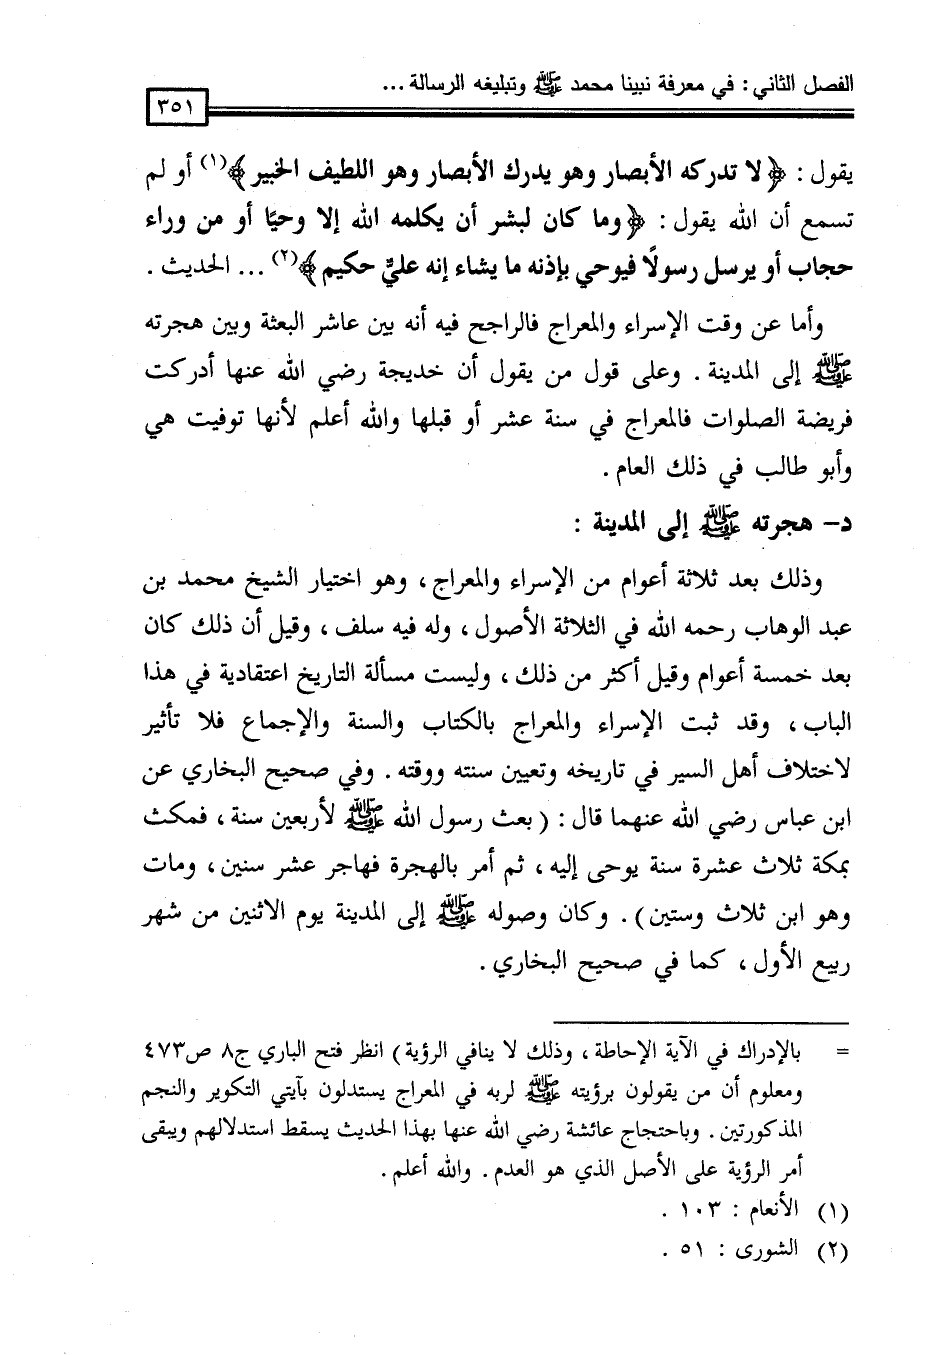 الفصل الثاني : في معرفة نبينا محمد ﷺ وتبليغه الرسالة ...
٣٥١
يقول : ﴿لا تدركه الأبصار وهو يدرك الأبصار وهو اللطيف الخبير﴾(١) أو لم
تسمع أن الله يقول : ﴿وما كان لبشر أن يكلمه الله إلا وحيًا أو من وراء
حجاب أو يرسل رسولًا فيوحي بإذنه ما يشاء إنه عليٌّ حكيم﴾(٢) ... الحديث .
وأما عن وقت الإسراء والمعراج فالراجح فيه أنه بين عاشر البعثة وبين هجرته
ﷺ إلى المدينة . وعلى قول من يقول أن خديجة رضي الله عنها أدركت
فريضة الصلوات فالمعراج في سنة عشر أو قبلها والله أعلم لأنها توفيت هي
وأبو طالب في ذلك العام .
د- هجرته ﷺ إلى المدينة :
وذلك بعد ثلاثة أعوام من الإسراء والمعراج ، وهو اختيار الشيخ محمد بن
عبد الوهاب رحمه الله في الثلاثة الأصول ، وله فيه سلف ، وقيل أن ذلك كان
بعد خمسة أعوام وقيل أكثر من ذلك ، وليست مسألة التاريخ اعتقادية في هذا
الباب ، وقد ثبت الإسراء والمعراج بالكتاب والسنة والإجماع فلا تأثير
لاختلاف أهل السير في تاريخه وتعيين سنته ووقته . وفي صحيح البخاري عن
ابن عباس رضي الله عنهما قال : ( بعث رسول الله ﷺ لأربعين سنة ، فمكث
بمكة ثلاث عشرة سنة يوحى إليه ، ثم أمر بالهجرة فهاجر عشر سنين ، ومات
وهو ابن ثلاث وستين ) . وكان وصوله ﷺ إلى المدينة يوم الاثنين من شهر
ربيع الأول ، كما في صحيح البخاري .
= بالإدراك في الآية الإحاطة ، وذلك لا ينافي الرؤية ) انظر فتح الباري ج٨ ص٤٧٣
ومعلوم أن من يقولون برؤيته ﷺ لربه في المعراج يستدلون بآيتي التكوير والنجم
المذكورتين . وباحتجاج عائشة رضي الله عنها بهذا الحديث يسقط استدلالهم ويبقى
أمر الرؤية على الأصل الذي هو العدم . والله أعلم .
(١) الأنعام : ١٠٣ .
(٢) الشورى : ٥١ .